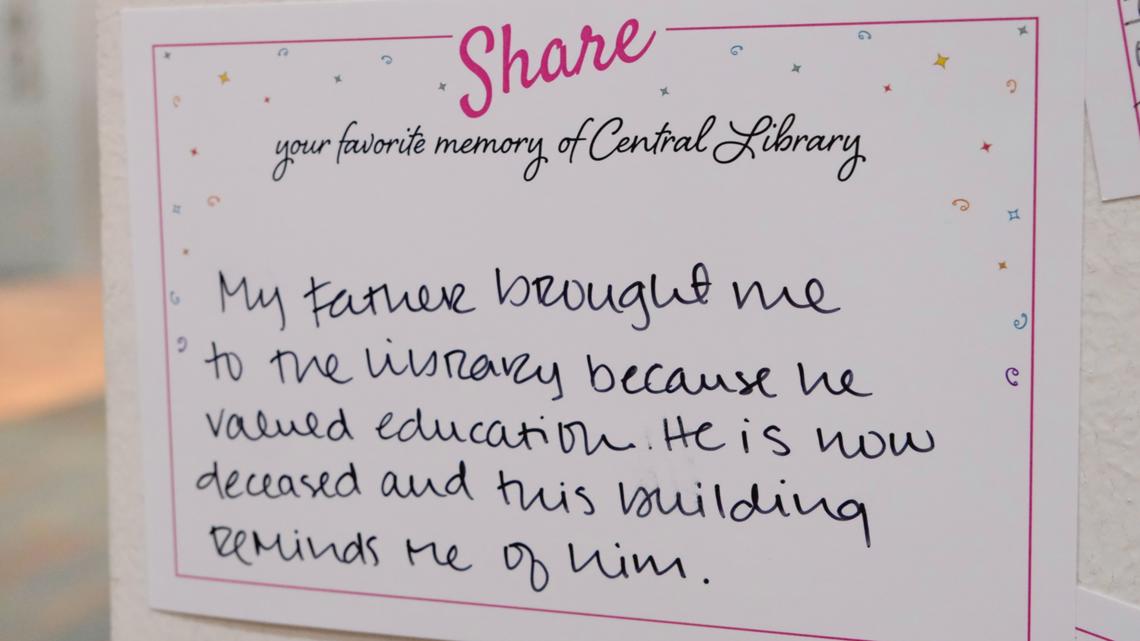 Share
your favorite memory of Central Library
My Father brought me
to the library because he
valued education. He is now
deceased and this building
reminds me of him.